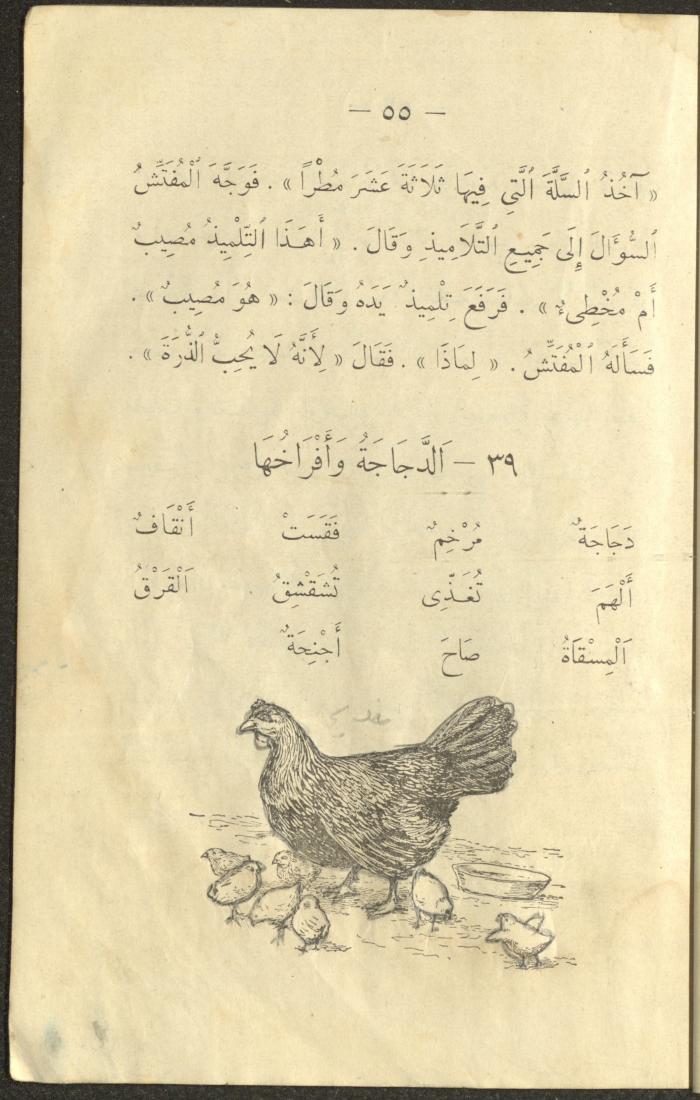 — ٥٥ —
« آخُذُ ٱلسَّلَّةَ ٱلَّتِي فِيهَا ثَلَاثَةَ عَشَرَ مُطْرًا » . فَوَجَّهَ ٱلْمُفَتِّشُ
ٱلسُّؤَالَ إِلَى جَمِيعِ ٱلتَّلَامِيذِ وَقَالَ . « أَهَذَا ٱلتِّلْمِيذُ مُصِيبٌ
أَمْ مُخْطِىءٌ » . فَرَفَعَ تِلْمِيذٌ يَدَهُ وَقَالَ : « هُوَ مُصِيبٌ » .
فَسَأَلَهُ ٱلْمُفَتِّشُ . « لِمَاذَا » . فَقَالَ « لِأَنَّهُ لَا يُحِبُّ ٱلذُّرَةَ » .
٣٩ — اَلدَّجَاجَةُ وَأَفْرَاخُهَا
دَجَاجَةٌ مُرْخِمٌ فَقَسَتْ أَنْقَافٌ
أَلْهَمَ تُغَذِّى تُشَقْشِقُ اَلْقَرْقُ
اَلْمِسْقَاةُ صَاحَ أَجْنِحَةٌ